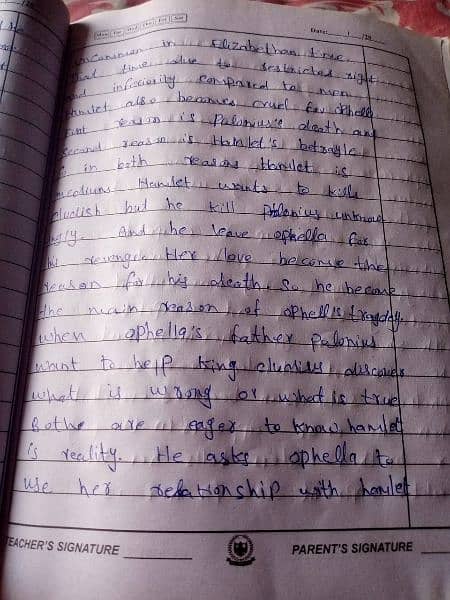 Mon Tue Wed Thu Fri Sat
Date: / /20
in Elizabethan time
time due to restricted right
and inferiority compared to men
Hamlet also becomes cruel for Ophella
reason is Palonius's death and
second reason is Hamlet's betragle
in both reasons Hamlet is
Hamlet wants to kill
but he kill Pholonius unknow
ingly. And he leave ophella for
his revenge. Her love become the
reason for his death. So he become
the main reason of ophell's tragday.
when ophella's father Palonius
want to help king cludius discover
what is wrong or what is true
Bothe are eager to know hamlet
is reality. He asks ophella to
use her relationship with hamlet
TEACHER'S SIGNATURE PARENT'S SIGNATURE